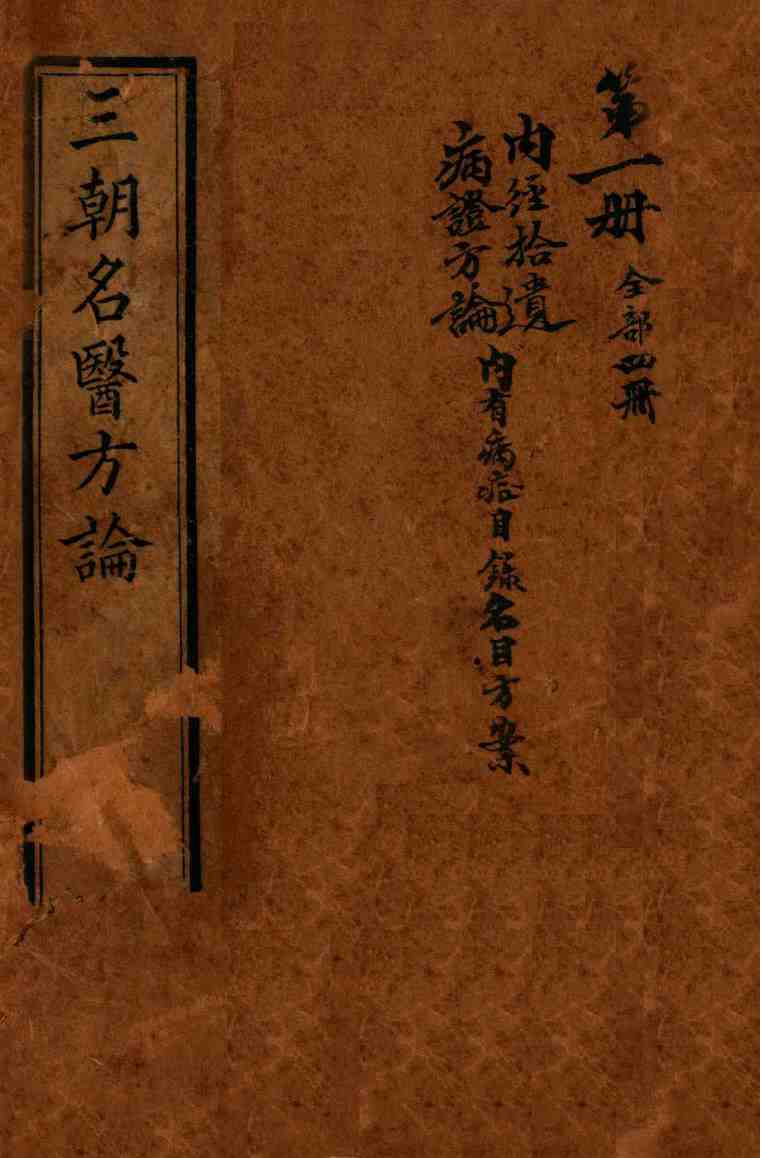 第一册 全部四冊
內經拾遺
病證方論
內有病症目錄名目方案
三朝名醫方論